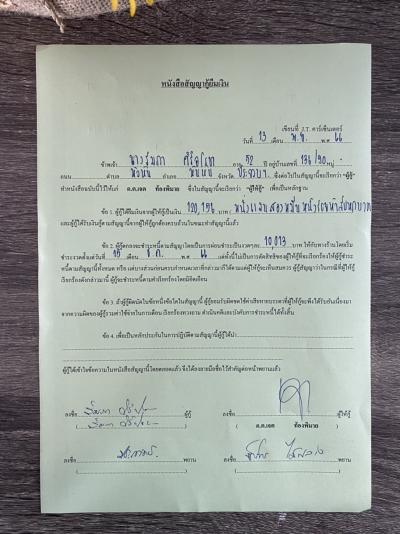 หนังสือสัญญากู้ยืมเงิน
เขียนที่ J.T. คาร์เซ็นเตอร์
วันที่ 13 เดือน พ.ย. พ.ศ. 66
ข้าพเจ้า อายุ 52 ปี อยู่บ้านเลขที่ 136/90 หมู่ -
ถนน ตำบล อำเภอ จังหวัด ซึ่งต่อไปในสัญญานี้จะเรียกว่า "ผู้กู้"
ทำหนังสือฉบับนี้ไว้ให้แก่ ด.ต.เจต ท้องพิมาย ซึ่งในสัญญานี้จะเรียกว่า "ผู้ให้กู้" เพื่อเป็นหลักฐาน
ข้อ 1. ผู้กู้ได้ยืมเงินจากผู้ให้กู้เป็นเงิน 120,156 บาท (หนึ่งแสนสองหมื่นหนึ่งร้อยห้าสิบหกบาท
และผู้กู้ได้รับเงินกู้ตามสัญญาจากผู้ให้กู้ถูกต้องครบถ้วนในขณะทำสัญญานี้แล้ว
ข้อ 2. ผู้กู้ตกลงจะชำระหนี้ตามสัญญาโดยเป็นการผ่อนชำระเป็นงวดๆละ 10,013 บาท ให้กับทางร้านโดยเริ่ม
ชำระงวดตั้งแต่วันที่ 15 เดือน ธ.ค. พ.ศ. 66 แต่ทั้งนี้ไม่เป็นการตัดสิทธิของผู้ให้กู้ที่จะเรียกร้องให้ผู้กู้ชำระ
หนี้ตามสัญญานี้ทั้งหมด หรือ แต่บางส่วนก่อนครบกำหนดเวลาที่กล่าวมาก็ได้ตามแต่ผู้ให้กู้จะเห็นสมควร ผู้กู้สัญญาว่าในกรณีที่ผู้ให้กู้
เรียกร้องดังกล่าวมานี้ ผู้กู้จะชำระหนี้ตามคำเรียกร้องโดยมิบิดเบือน
ข้อ 3. ถ้าผู้กู้ผิดนัดในข้อหนึ่งข้อใดในสัญญานี้ ผู้กู้ยอมรับผิดชดใช้ค่าเสียหายบรรดาที่ผู้ให้กู้จะพึงได้รับอันเนื่องมา
จากความผิดของผู้กู้รวมค่าใช้จ่ายในการเตือน เรียกร้องทวงถาม ดำเนินคดีและบังคับการชำระหนี้ได้ทั้งสิ้น
ข้อ 4. เพื่อเป็นหลักประกันในการปฏิบัติตามสัญญานี้ ผู้กู้ได้นำ
ผู้กู้ได้เข้าใจข้อความในหนังสือสัญญานี้โดยตลอดแล้ว จึงได้ลงลายมือชื่อไว้สำคัญต่อหน้าพยานแล้ว
ลงชื่อ ผู้กู้ ลงชื่อ ผู้ให้กู้
( ) ( ด.ต.เจต ท้องพิมาย )
ลงชื่อ พยาน ลงชื่อ พยาน
( ) ( )